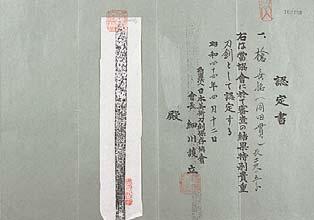 認定書
一、槍 無銘(同田貫)
右は當協會に於て審査の結果特別貴重
刀剣として認定する
昭和四十四年四月十二日
財團法人日本美術刀剣保存協會
會長 細川護立
殿